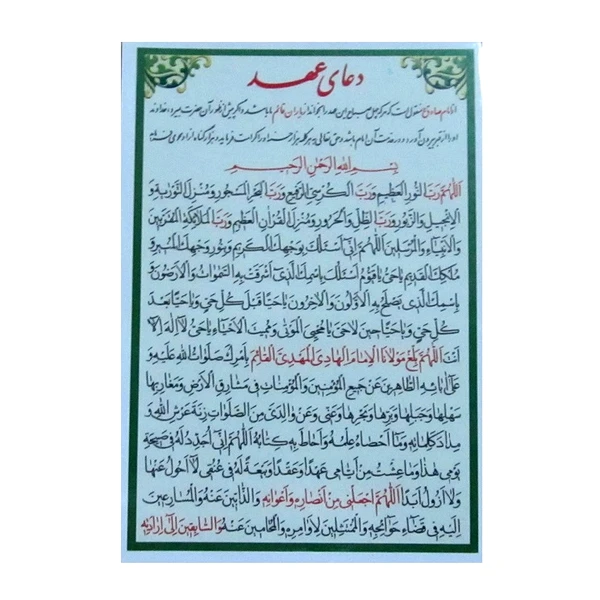 دعای عهد
از امام صادق منقول است که هر که چهل صباح این عهد را بخواند از یاران قائم ما باشد و اگر پیش از ظهور آن حضرت بمیرد خداوند
او را از قبر بیرون آورد و در خدمت آن امام باشد و حق تعالی به هر کلمه هزار حسنه او را کرامت فرماید و هزار گناه از او محو
بِسْمِ اللهِ الرَّحْمٰنِ الرَّحِيمِ
اَللّٰهُمَّ رَبَّ النُّورِ الْعَظِيمِ وَرَبَّ الْكُرْسِيِّ الرَّفِيعِ وَرَبَّ الْبَحْرِ الْمَسْجُورِ وَمُنْزِلَ التَّوْرٰيةِ وَ
الْاِنْجِيلِ وَالزَّبُورِ وَرَبَّ الظِّلِّ وَالْحَرُورِ وَمُنْزِلَ الْقُرْاٰنِ الْعَظِيمِ وَرَبَّ الْمَلٰائِكَةِ الْمُقَرَّبِينَ
وَالْاَنْبِيٰاءِ وَالْمُرْسَلِينَ اَللّٰهُمَّ اِنِّي اَسْئَلُكَ بِوَجْهِكَ الْكَرِيمِ وَبِنُورِ وَجْهِكَ الْمُنِيرِ وَ
مُلْكِكَ الْقَدِيمِ يٰا حَيُّ يٰا قَيُّومُ اَسْئَلُكَ بِاسْمِكَ الَّذِي اَشْرَقَتْ بِهِ السَّمٰوٰاتُ وَالْاَرَضُونَ وَ
بِاسْمِكَ الَّذِي يَصْلَحُ بِهِ الْاَوَّلُونَ وَالْاٰخِرُونَ يٰا حَيًّا قَبْلَ كُلِّ حَيٍّ وَيٰا حَيًّا بَعْدَ
كُلِّ حَيٍّ وَيٰا حَيًّا حِينَ لٰا حَيَّ يٰا مُحْيِيَ الْمَوْتٰى وَمُمِيتَ الْاَحْيٰاءِ يٰا حَيُّ لٰا اِلٰهَ اِلّٰا
اَنْتَ اَللّٰهُمَّ بَلِّغْ مَوْلٰانَا الْاِمٰامَ الْهٰادِيَ الْمَهْدِيَّ الْقٰائِمَ بِاَمْرِكَ صَلَوٰاتُ اللهِ عَلَيْهِ وَ
عَلٰى اٰبٰائِهِ الطّٰاهِرِينَ عَنْ جَمِيعِ الْمُؤْمِنِينَ وَالْمُؤْمِنٰاتِ فِي مَشٰارِقِ الْاَرْضِ وَمَغٰارِبِهٰا
سَهْلِهٰا وَجَبَلِهٰا وَبَرِّهٰا وَبَحْرِهٰا وَعَنِّي وَعَنْ وٰالِدَيَّ مِنَ الصَّلَوٰاتِ زِنَةَ عَرْشِ اللهِ وَ
مِدٰادَ كَلِمٰاتِهِ وَمٰا اَحْصٰاهُ عِلْمُهُ وَاَحٰاطَ بِهِ كِتٰابُهُ اَللّٰهُمَّ اِنِّي اُجَدِّدُ لَهُ فِي صَبِيحَةِ
يَوْمِي هٰذٰا وَمٰا عِشْتُ مِنْ اَيّٰامِي عَهْدًا وَعَقْدًا وَبَيْعَةً لَهُ فِي عُنُقِي لٰا اَحُولُ عَنْهٰا
وَلٰا اَزُولُ اَبَدًا اَللّٰهُمَّ اجْعَلْنِي مِنْ اَنْصٰارِهِ وَاَعْوٰانِهِ وَالذّٰابِّينَ عَنْهُ وَالْمُسٰارِعِينَ
اِلَيْهِ فِي قَضٰاءِ حَوٰائِجِهِ وَالْمُمْتَثِلِينَ لِاَوٰامِرِهِ وَالْمُحٰامِينَ عَنْهُ وَالسّٰابِقِينَ اِلٰى اِرٰادَتِهِ